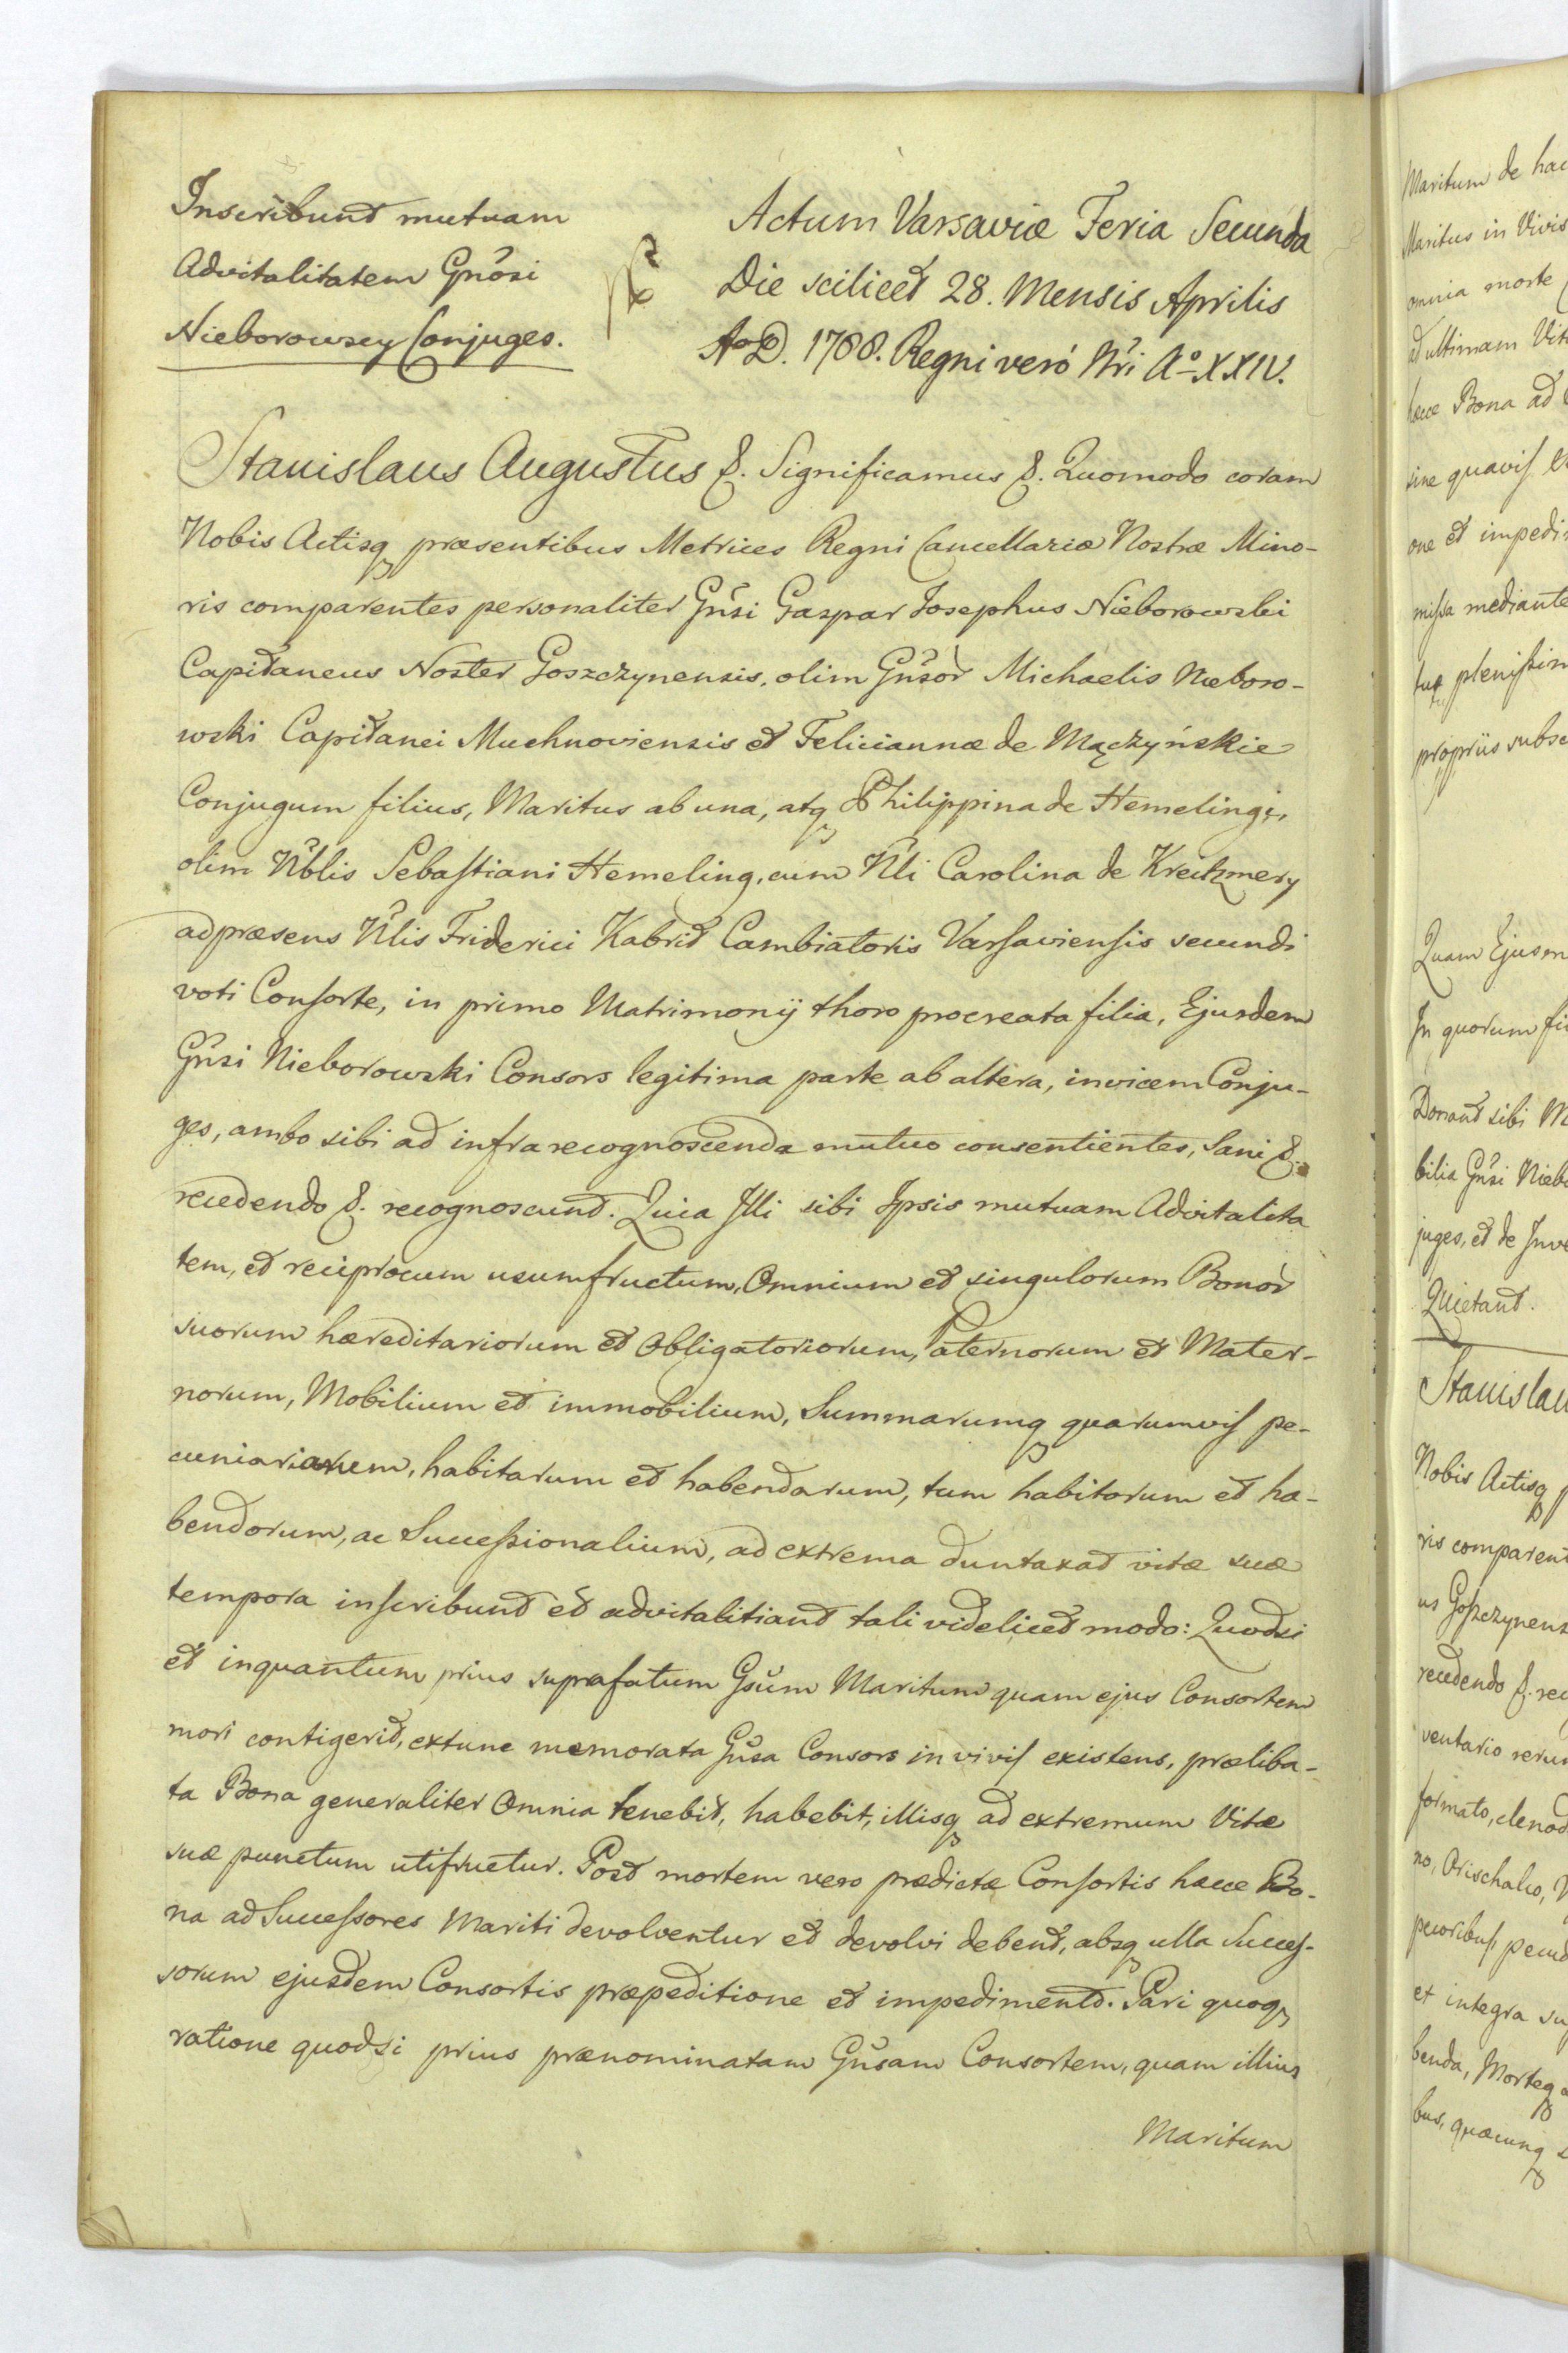 Inscribunt mutuam
Advitalitatem Gnosi
Nieborowscy Conjuges.
Actum Varsaviæ Feria Secunda
Die scilicet 28. Mensis Aprilis
AoD. 1788. Regni veró Nri Ao XXIV.
Stanislaus Augustus &. Significamus &. Quomodo coram
Nobis Actisq præsentibus Metrices Regni Cancellariæ Nostræ Mino-
ris comparentes personaliter Gnsi Gaspar Josephus Nieborowski
Capitaneus Noster Goszczynensis, olim Gnsor Michaelis Nieboro-
wski Capitanei Muchnoviensis et Feliciannæ de Mączyńskie
Conjugum filius, Maritus ab una, atq Philippina de Hemelingi,
olim Nblis Sebastiani Hemeling, cum Nli Carolina de Kreitzmery
ad præsens Nlis Friderici Kabrit Cambiatoris Varsaviensis secundi
voti Consorte, in primo Matrimonij thoro procreata filia, Ejusdem
Gnsi Nieborowski Consors legitima parte ab altera, invicem Conju-
ges, ambo sibi ad infra recognoscenda mutuo consentientes, Sani &.
recedendo &. recognoscunt. Quia Illi sibi Ipsis mutuam Advitalita
tem, et reciprocum usumfructum, Omnium et singulorum Bonor
suorum hæreditariorum et Obligatoriorum, Paternorum et Mater-
norum, Mobilium et immobilium, Summarumq quarumvis pe-
cuniariarum, habitarum et habendarum, tum habitorum et ha-
bendorum, ac Successionalium, ad extrema duntaxat vitæ suæ
tempora inscribunt et advitalitiant tali videlicet modo: Quodsi
et inquantum prius suprafatum Gsum Maritum quam ejus Consortem
mori contigerit, extunc memorata Gnsa Consors in vivis existens, præliba-
ta Bona generaliter Omnia tenebit, habebit, illisq ad extremum Vitæ
suæ punctum utifruetur. Post mortem vero prædictæ Consortis hæce Bo-
na ad Successores Mariti devolventur et devolvi debent, absq ulla Succes-
sorum ejusdem Consortis præpeditione et impedimento. Pari quoq
ratione quodsi prius prænominatam Gnsam Consortem, quam illius
Maritum
Maritum de hac
Maritus in Vivis
omnia morte
ad ultimam Vit
hæce Bona ad
sine quavis
one et impedi
missa mediante
tur plenissim
propriis subsc
Quam Ejusm
In quorum fi
Donant sibi M
bilia Gnsi Nieb
juges, et de Inve
Quietant.
Stanislau
Nobis Actisq p
ris comparent
us Goszczynens
recedendo &. rec
ventario rerum
formato, clenod
no, Orischalco,
pecoribus, pecud
et integra su
benda, Morteq
bus, quæcunq